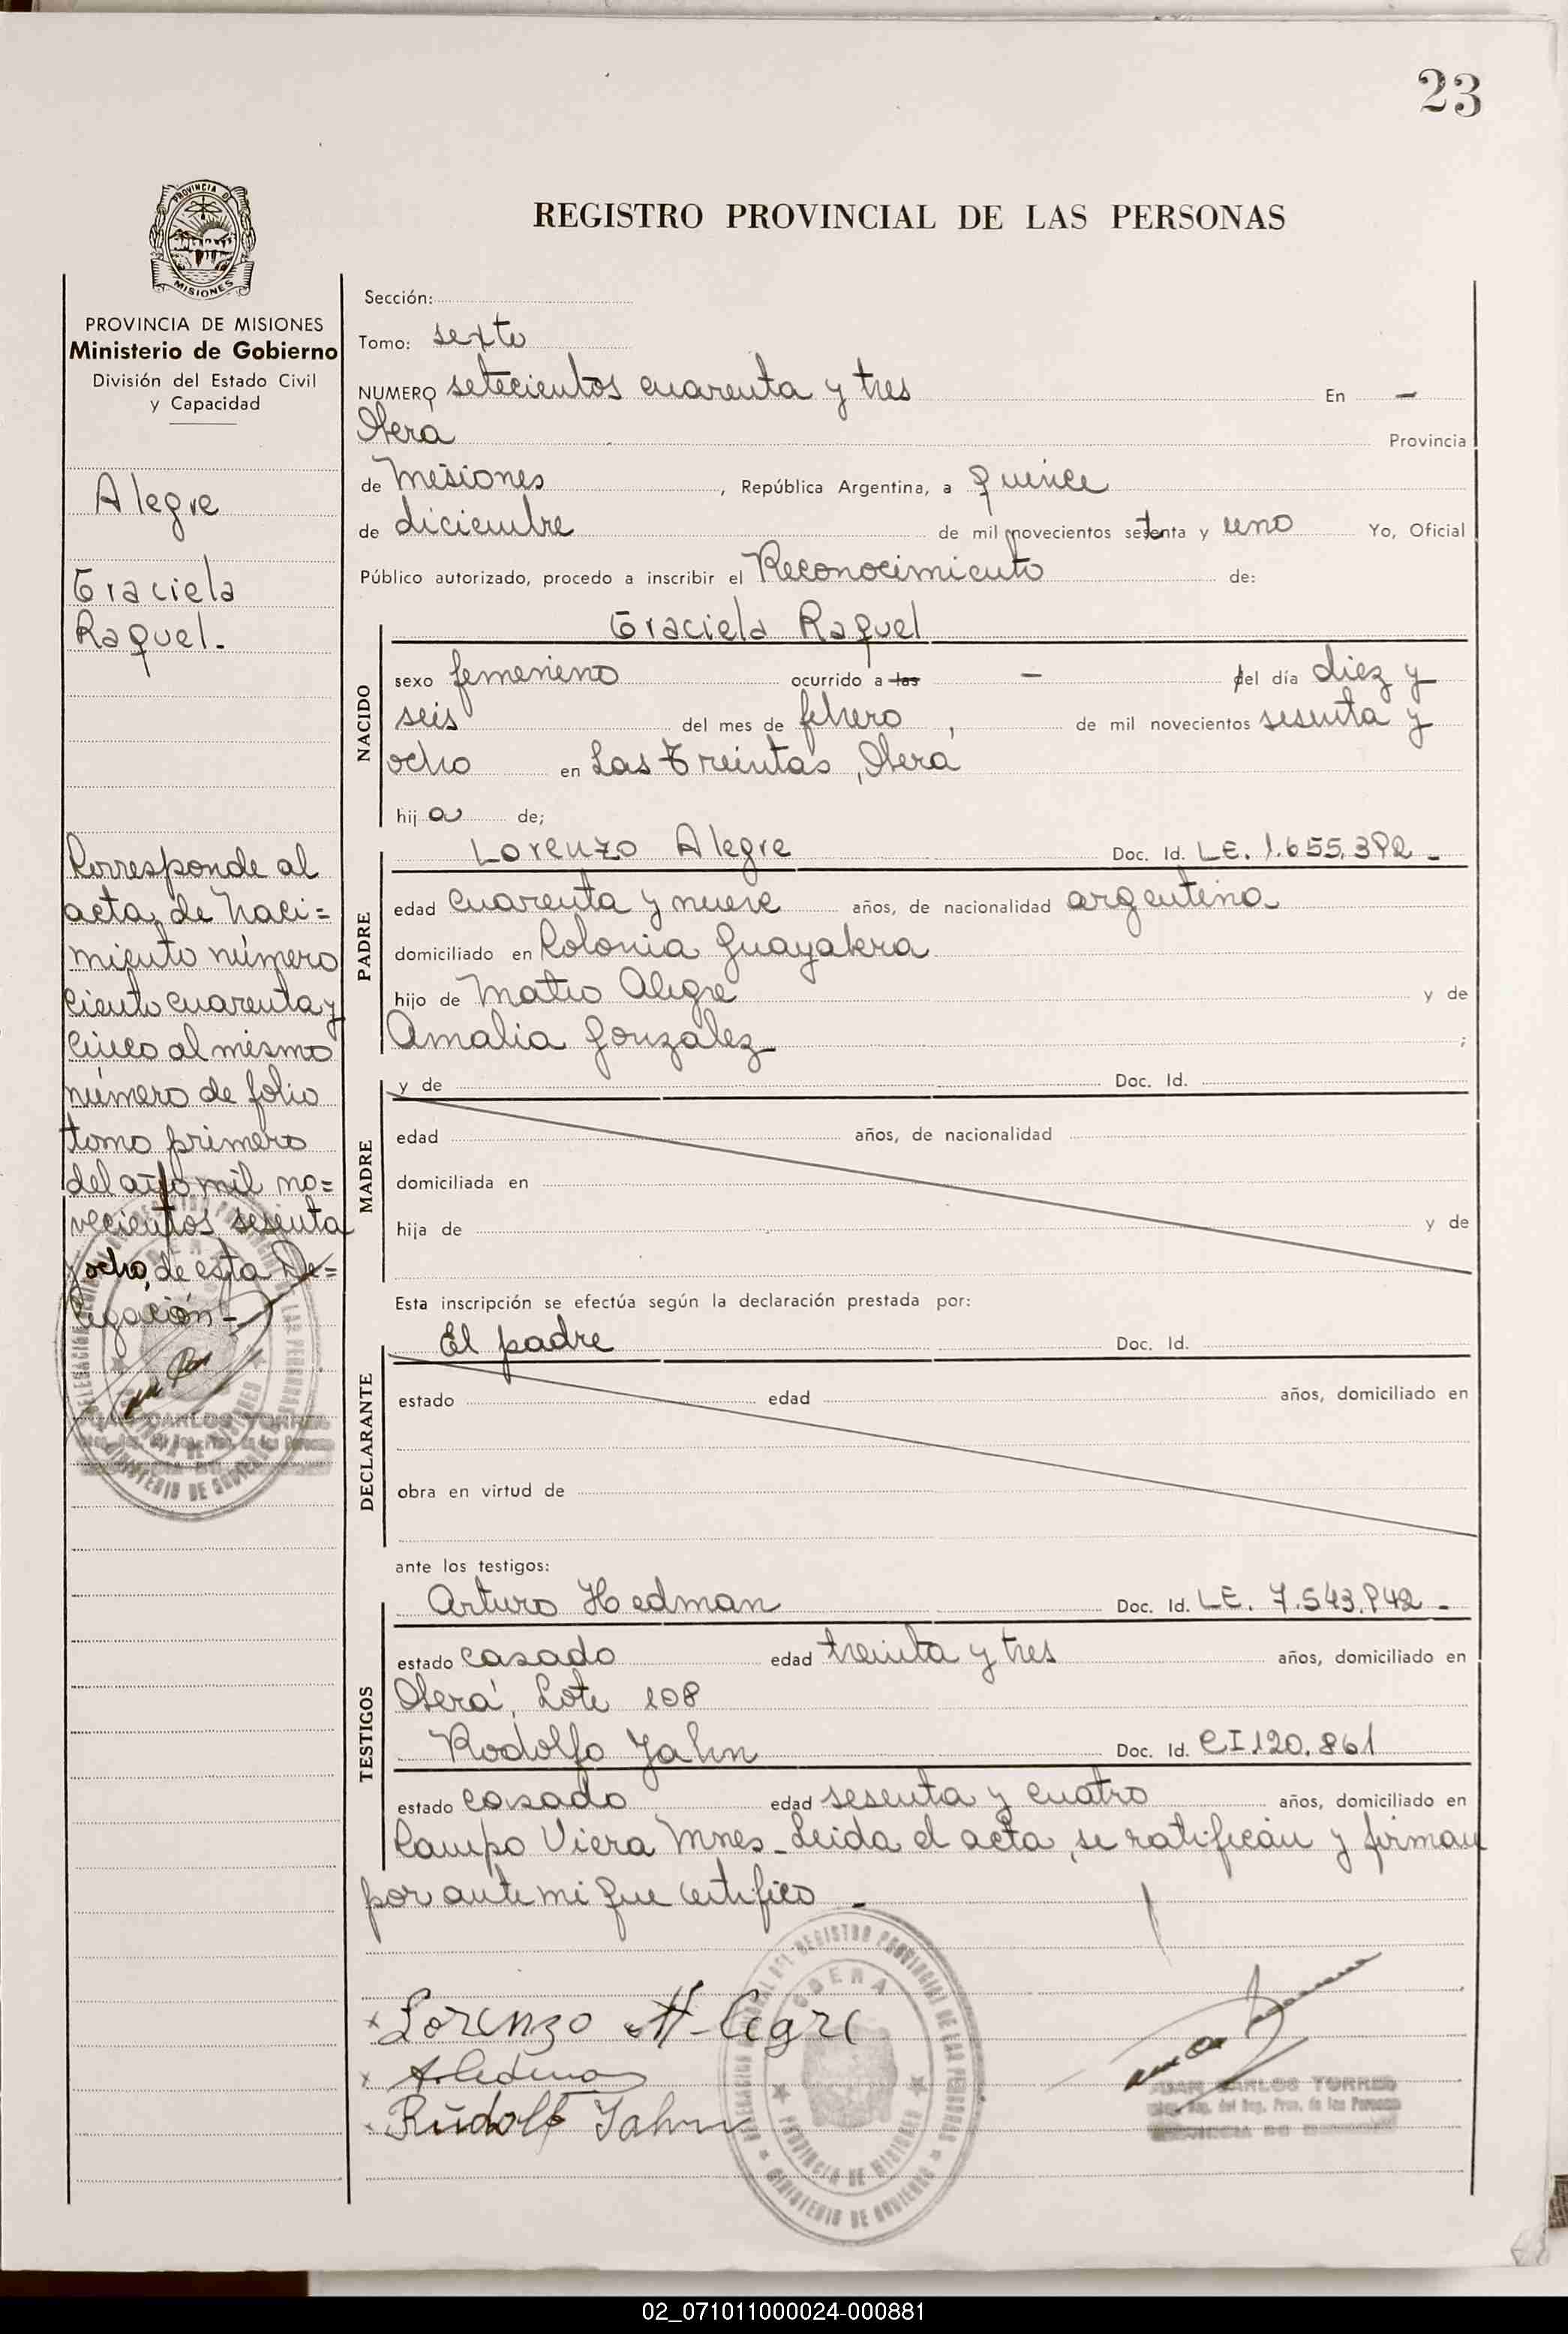 23
PROVINCIA DE MISIONES
REGISTRO PROVINCIAL DE LAS PERSONAS
PROVINCIA DE MISIONES
Ministerio de Gobierno
División del Estado Civil
y Capacidad
Alegre
Graciela
Raquel.-
Corresponde al
acta de Naci=
miento número
ciento cuarenta y
cinco al mismo
número de folio
tomo primero
del año mil no=
vecientos sesenta
y ocho, de esta De=
legación-
Sección:
Tomo: sexto
NUMERO setecientos cuarenta y tres En -
Oberá Provincia
de Misiones, República Argentina, a quince
de diciembre de mil novecientos setenta y uno Yo, Oficial
Público autorizado, procedo a inscribir el Reconocimiento de:
NACIDO
Graciela Raquel
sexo femenino ocurrido a las - del día diez y
seis del mes de febrero, de mil novecientos sesenta y
ocho en Las Treintas, Oberá
hija de;
PADRE
Lorenzo Alegre Doc. Id. LE. 1.655.392.-
edad cuarenta y nueve años, de nacionalidad argentina
domiciliado en Colonia Guayabera
hijo de Mateo Alegre y de
Amalia Gonzalez ;
MADRE
y de Doc. Id.
edad años, de nacionalidad
domiciliada en
hija de y de
Esta inscripción se efectúa según la declaración prestada por:
DECLARANTE
El padre Doc. Id.
estado edad años, domiciliado en
obra en virtud de
ante los testigos:
TESTIGOS
Arturo Hedman Doc. Id. LE. 7.543.942.-
estado casado edad treinta y tres años, domiciliado en
Oberá, Lote 108
Rodolfo Jahn Doc. Id. CI 120.861
estado casado edad sesenta y cuatro años, domiciliado en
Campo Viera Mnes.- Leida el acta, se ratifican y firman
por ante mi que certifico -
x Lorenzo Alegre
x A. Hedman
x Rudolf Jahn
OBERA
DELEGACION DEL REGISTRO PROVINCIAL DE LAS PERSONAS
PROVINCIA DE MISIONES
MINISTERIO DE GOBIERNO
JUAN CARLOS TORRES
del Reg. Prov. de las Personas
02_071011000024-000881